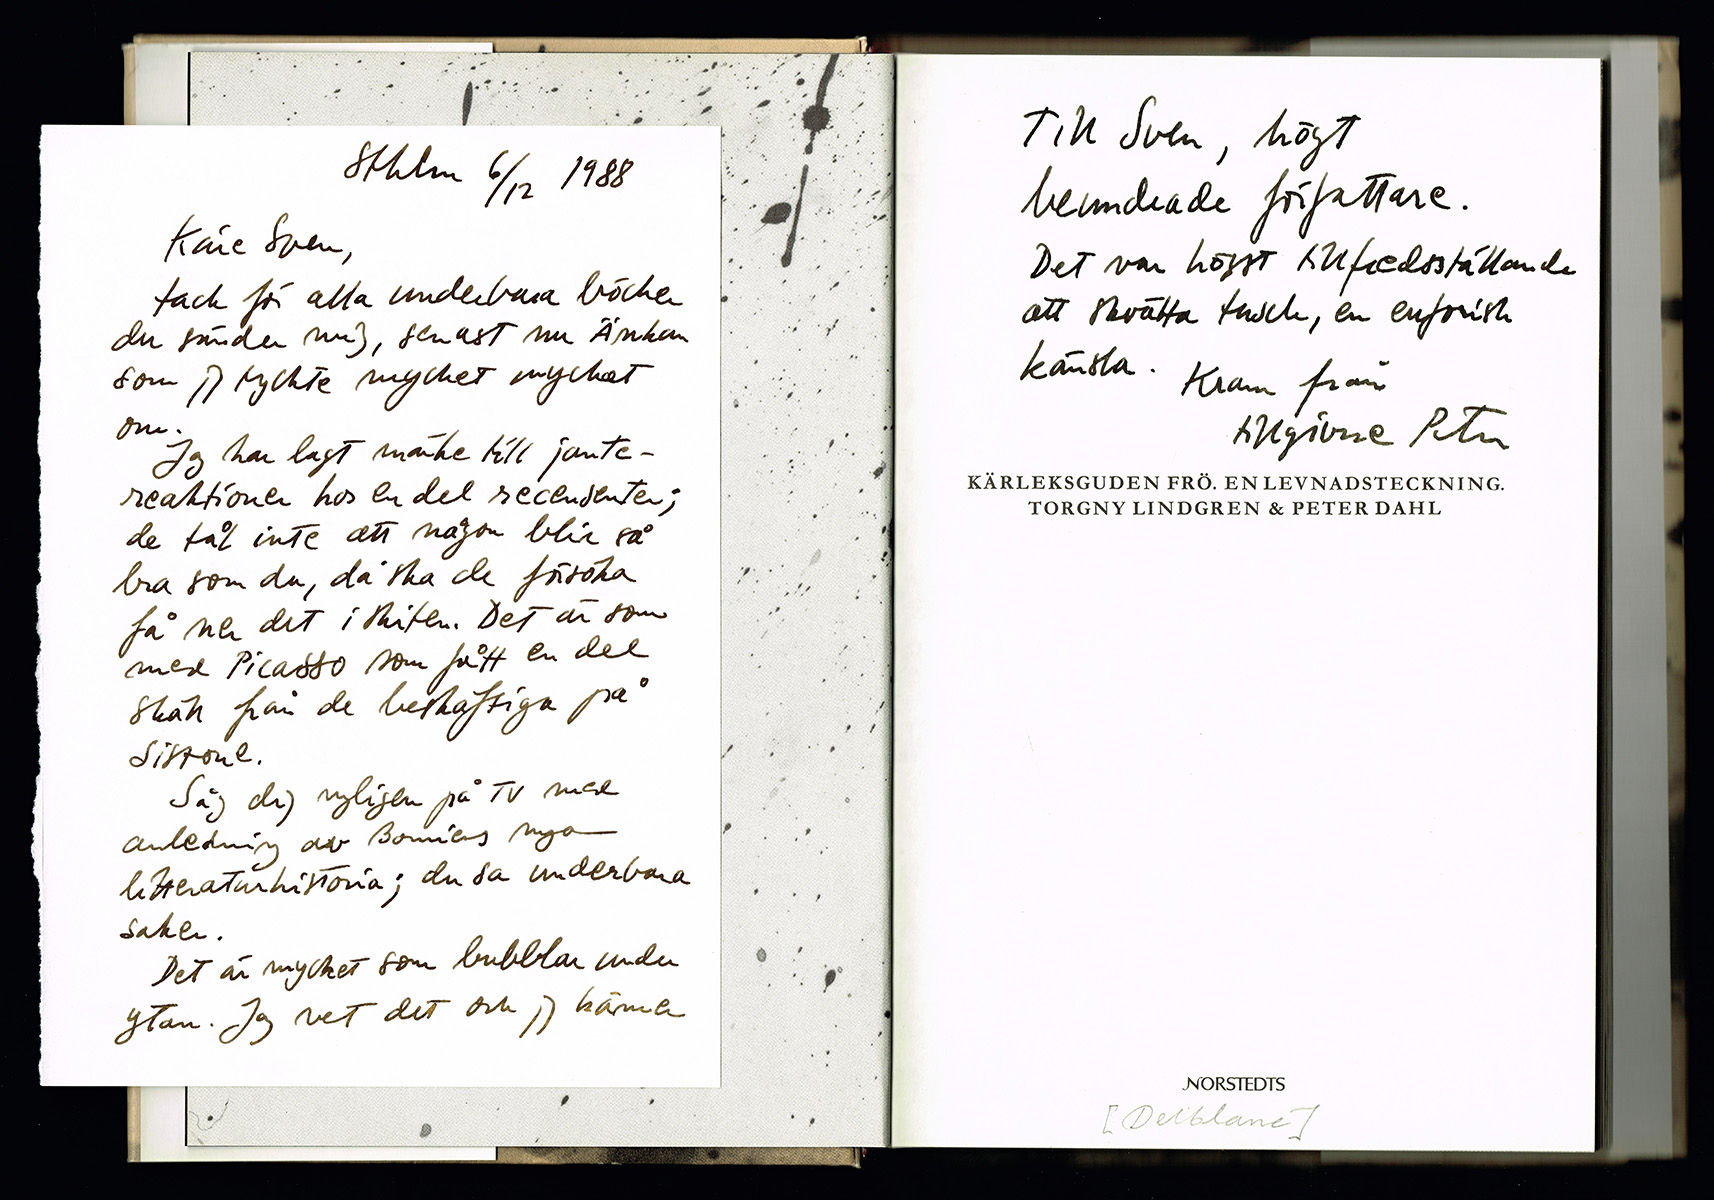 Sthlm 6/12 1988
Käre Sven,
tack för alla underbara böcker
du sänder mig, senast nu Änkan
som jag tyckte mycket mycket
om.
Jag har lagt märke till jante-
reaktioner hos en del recensenter;
de tål inte att någon blir så
bra som du, då ska de försöka
få ner det i skiten. Det är som
med Picasso som fått en del
skäll från de beskäftiga på
sistone.
Såg dig nyligen på TV med
anledning av Bonniers nya
litteraturhistoria; du sa underbara
saker.
Det är mycket som bubblar under
ytan. Jag vet det och jag känner
Till Sven, högt
beundrade författare.
Det var högst tillfredsställande
att skvätta tusch, en euforisk
känsla. Kram från
tillgivne Peter
KÄRLEKSGUDEN FRÖ. EN LEVNADSTECKNING.
TORGNY LINDGREN & PETER DAHL
NORSTEDTS
[Delblanc]